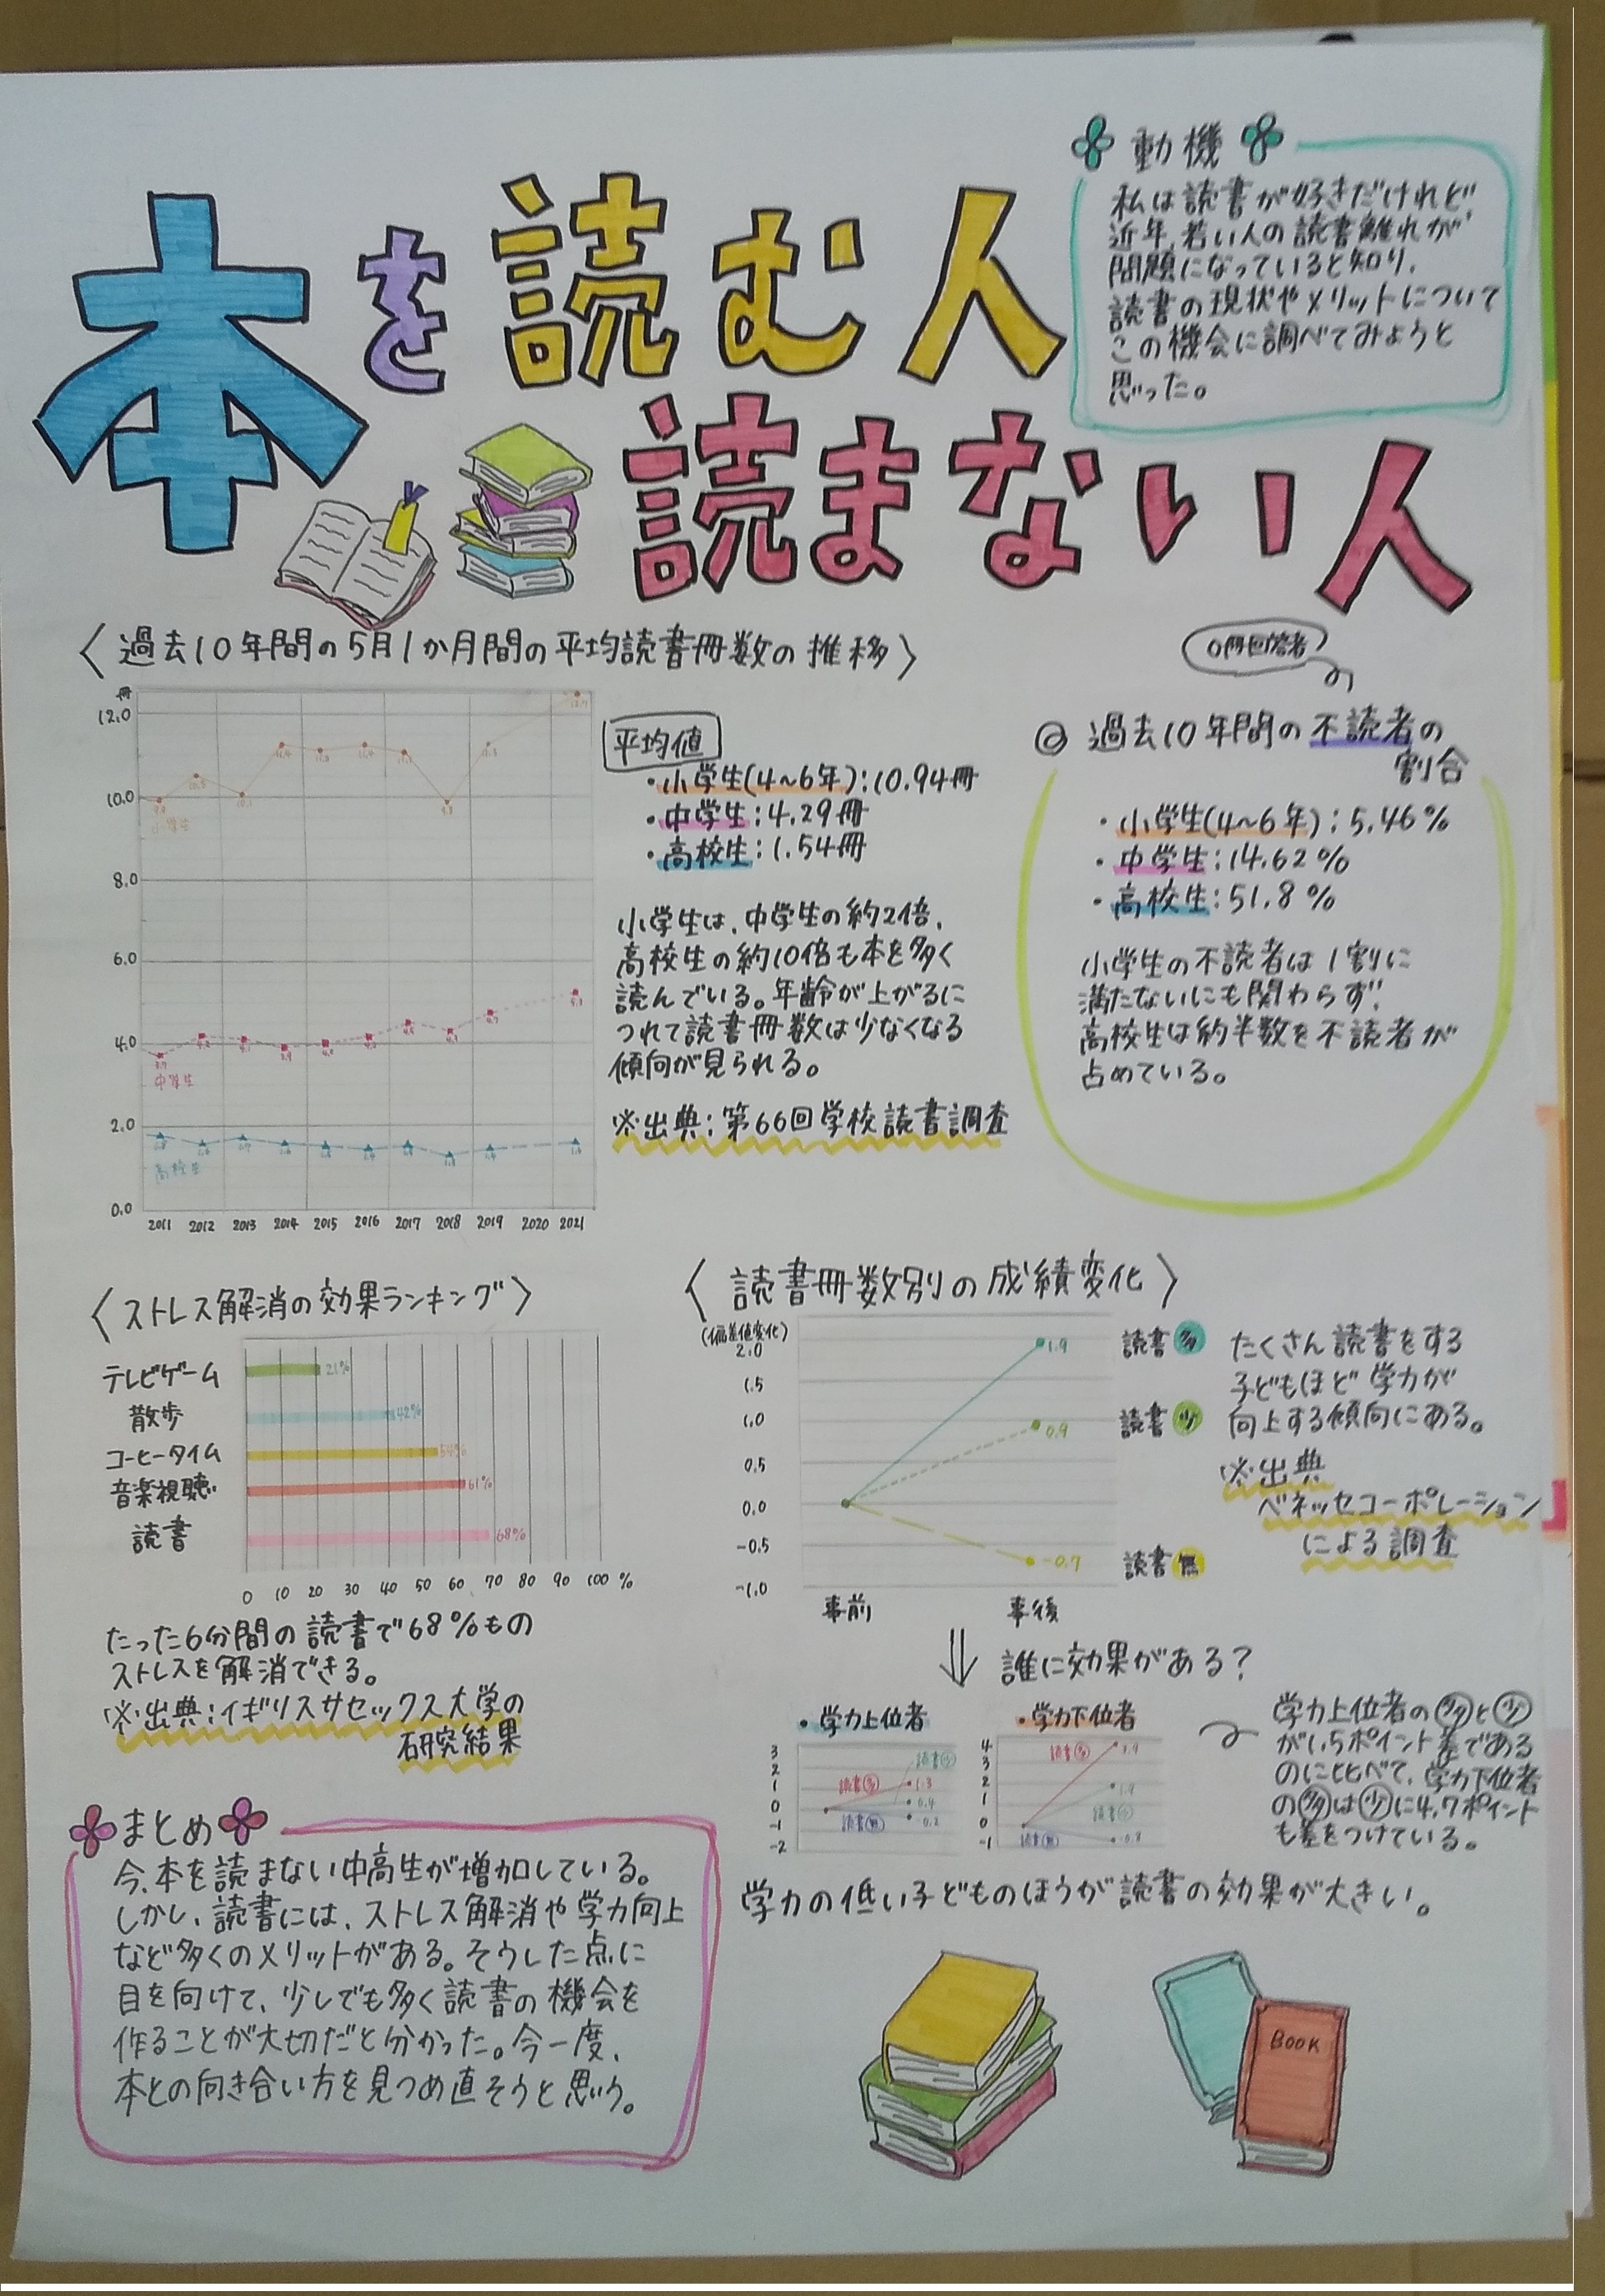 本を読む人
読まない人
動機
私は読書が好きだけれど
近年、若い人の読書離れが
問題になっていると知り、
読書の現状やメリットについて
この機会に調べてみようと
思った。
〈過去10年間の5月1か月間の平均読書冊数の推移〉
冊
12.0
10.0
8.0
6.0
4.0
2.0
0.0
小学生
中学生
高校生
2011 2012 2013 2014 2015 2016 2017 2018 2019 2020 2021
平均値
・小学生(4~6年):10.94冊
・中学生:4.29冊
・高校生:1.54冊
小学生は、中学生の約2倍、
高校生の約10倍も本を多く
読んでいる。年齢が上がるに
つれて読書冊数は少なくなる
傾向が見られる。
※出典:第66回学校読書調査
0冊回答者
◎過去10年間の不読者の
割合
・小学生(4~6年):5.46%
・中学生:14.62%
・高校生:51.8%
小学生の不読者は1割に
満たないにも関わらず、
高校生は約半数を不読者が
占めている。
〈ストレス解消の効果ランキング〉
テレビゲーム 21%
散歩 42%
コーヒータイム 54%
音楽視聴 61%
読書 68%
0 10 20 30 40 50 60 70 80 90 100 %
たった6分間の読書で68%もの
ストレスを解消できる。
※出典:イギリスサセックス大学の
研究結果
〈読書冊数別の成績変化〉
(偏差値変化)
2.0
1.5
1.0
0.5
0.0
-0.5
-1.0
1.9
0.9
-0.7
読書多
読書少
読書無
事前 事後
たくさん読書をする
子どもほど学力が
向上する傾向にある。
※出典
ベネッセコーポレーション
による調査
誰に効果がある?
・学力上位者
3
2
1
0
-1
-2
読書少
読書多
読書無
1.3
0.4
-0.2
・学力下位者
4
3
2
1
0
-1
読書多
読書少
読書無
3.9
1.9
-0.8
学力上位者の多と少
が1.5ポイント差である
のに比べて、学力下位者
の多は少に4.7ポイント
も差をつけている。
学力の低い子どものほうが読書の効果が大きい。
まとめ
今、本を読まない中高生が増加している。
しかし、読書には、ストレス解消や学力向上
など多くのメリットがある。そうした点に
目を向けて、少しでも多く読書の機会を
作ることが大切だと分かった。今一度、
本との向き合い方を見つめ直そうと思う。
BOOK